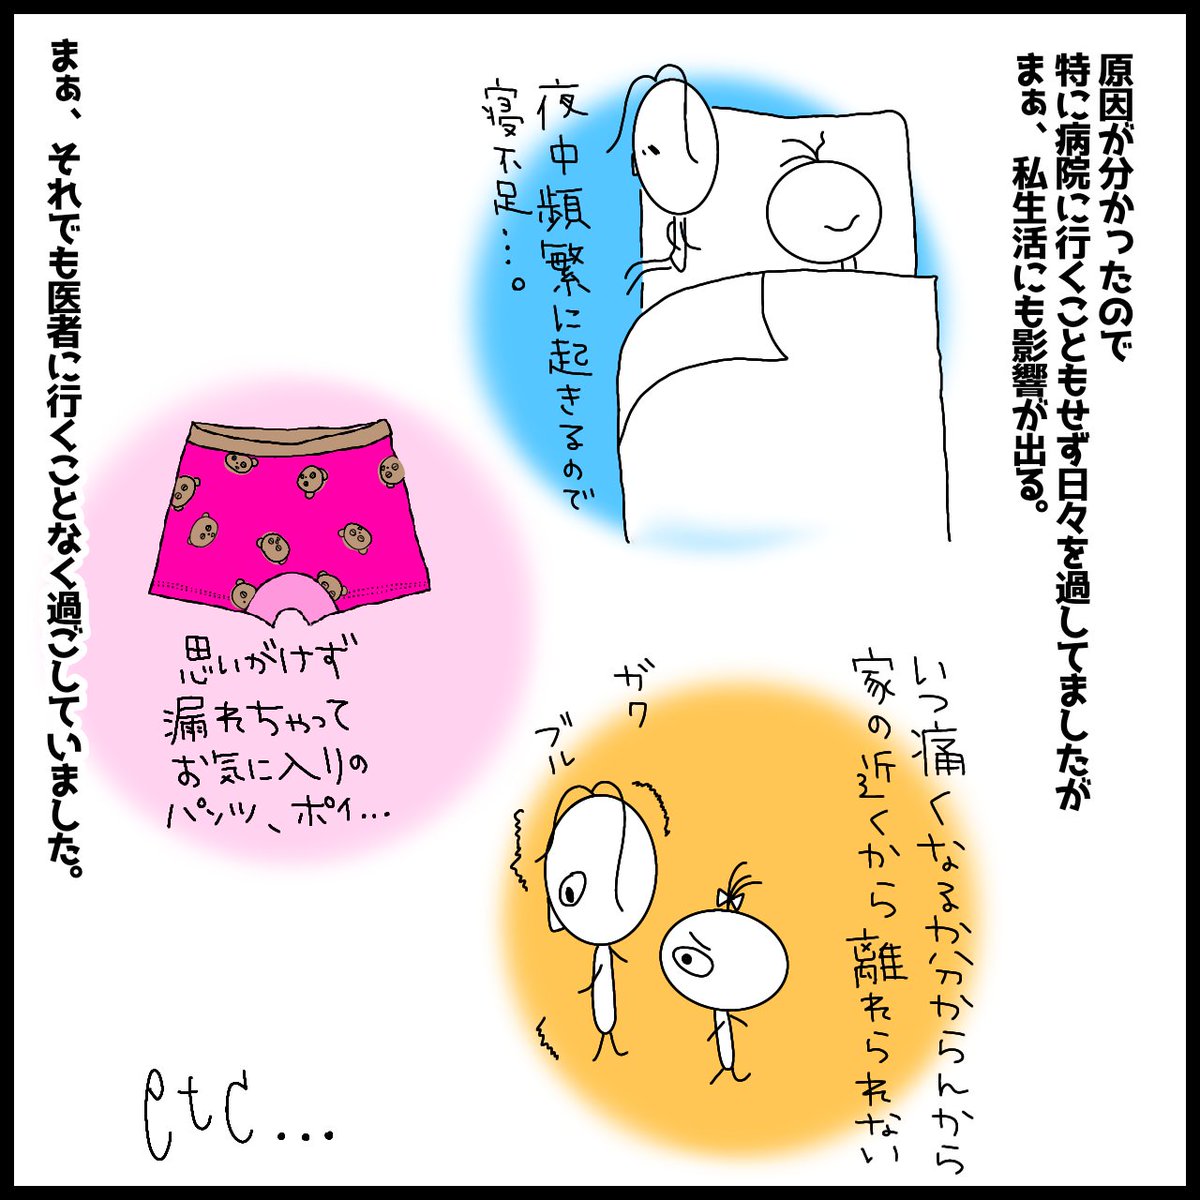 原因が分かったので
特に病院に行くこともせず日々を過してましたが
まぁ、私生活にも影響が出る。
夜中頻繁に起きるので
寝不足…。
思いがけず
漏れちゃって
お気に入りの
パンツ、ポイ…
いつ痛くなるか分からんから
家の近くから離れられない
ガク
ブル
etc...
まぁ、それでも医者に行くことなく過ごしていました。